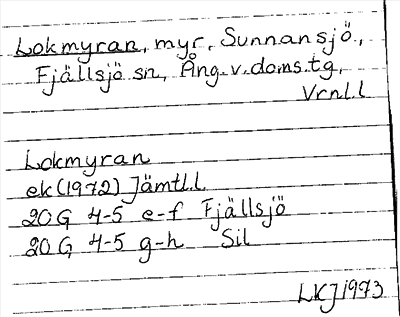 Lokmyran, myr, Sunnansjö.,
Fjällsjö sn, Ång.v.doms.tg,
Vrnl.l
Lokmyran
ek(1972) Jämtl.l.
20G 4-5 e-f Fjällsjö
20G 4-5 g-h Sil
LKJ 1973